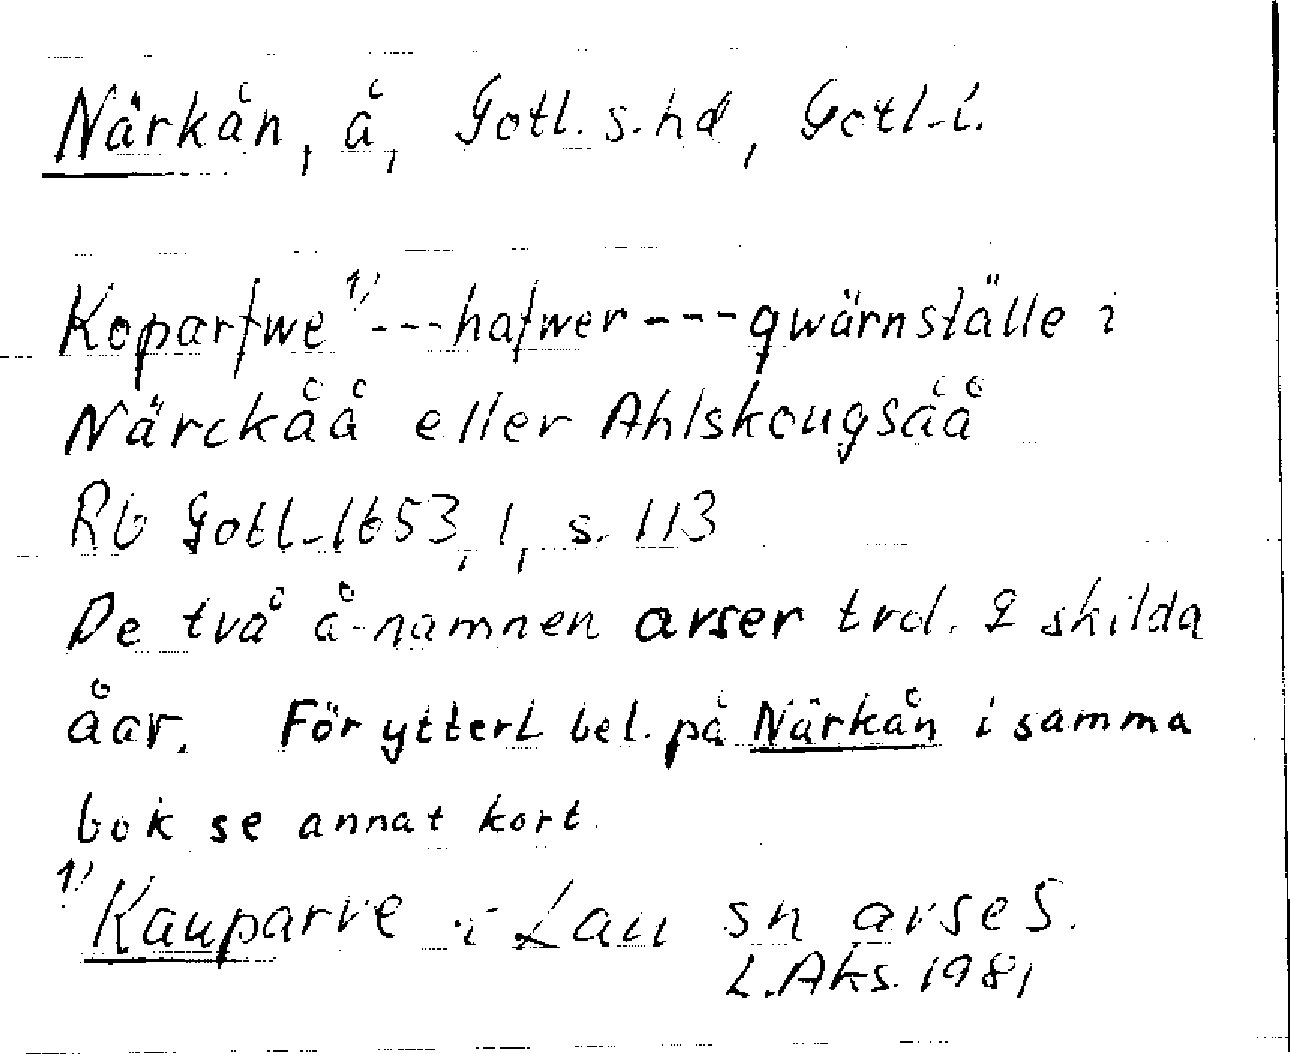 Närkån, å, Gotl. s. hd, Gotl. l.
Koparfwe 1) --- hafwer --- qwärnställe i
Närckåå eller Ahlskougsåå
Rb Gotl. 1653, 1, s. 113
De två å-namnen avser trol. 2 skilda
åar. För ytterl bel. på Närkån i samma
bok se annat kort.
1) Kauparve i Lau sn avses.
L. Aks. 1981